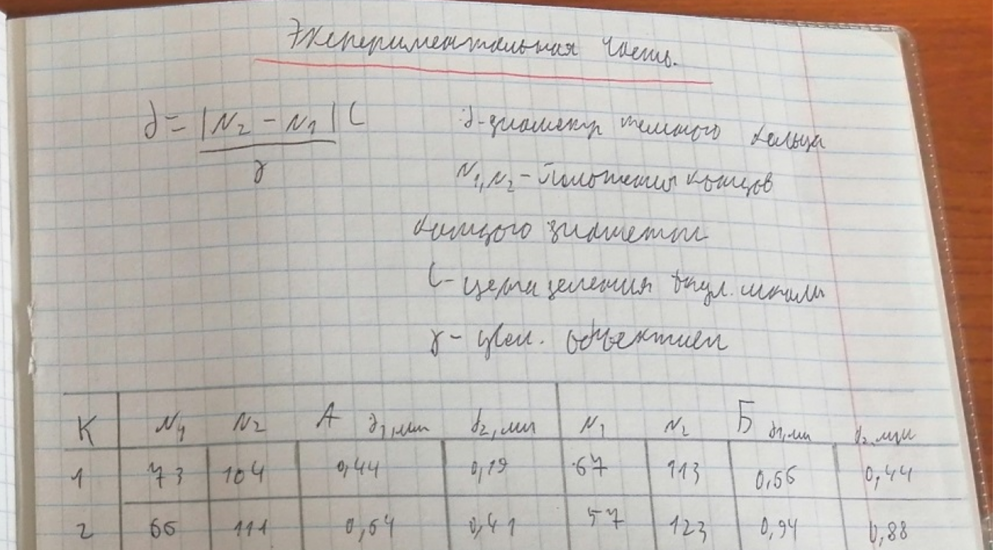 Экспериментальная часть.
d = |N₂ - N₁| C
γ
d - диаметр темного кольца
N₁, N₂ - положения концов
каждого диаметра
C - цена деления окул. шкалы
γ - увел. объектива
К N₁ N₂ А d₁, мм d₂, мм N₁ N₂ Б d₁, мм d₂, мм
1 73 104 0,44 0,19 67 113 0,66 0,44
2 66 111 0,64 0,41 57 123 0,94 0,88